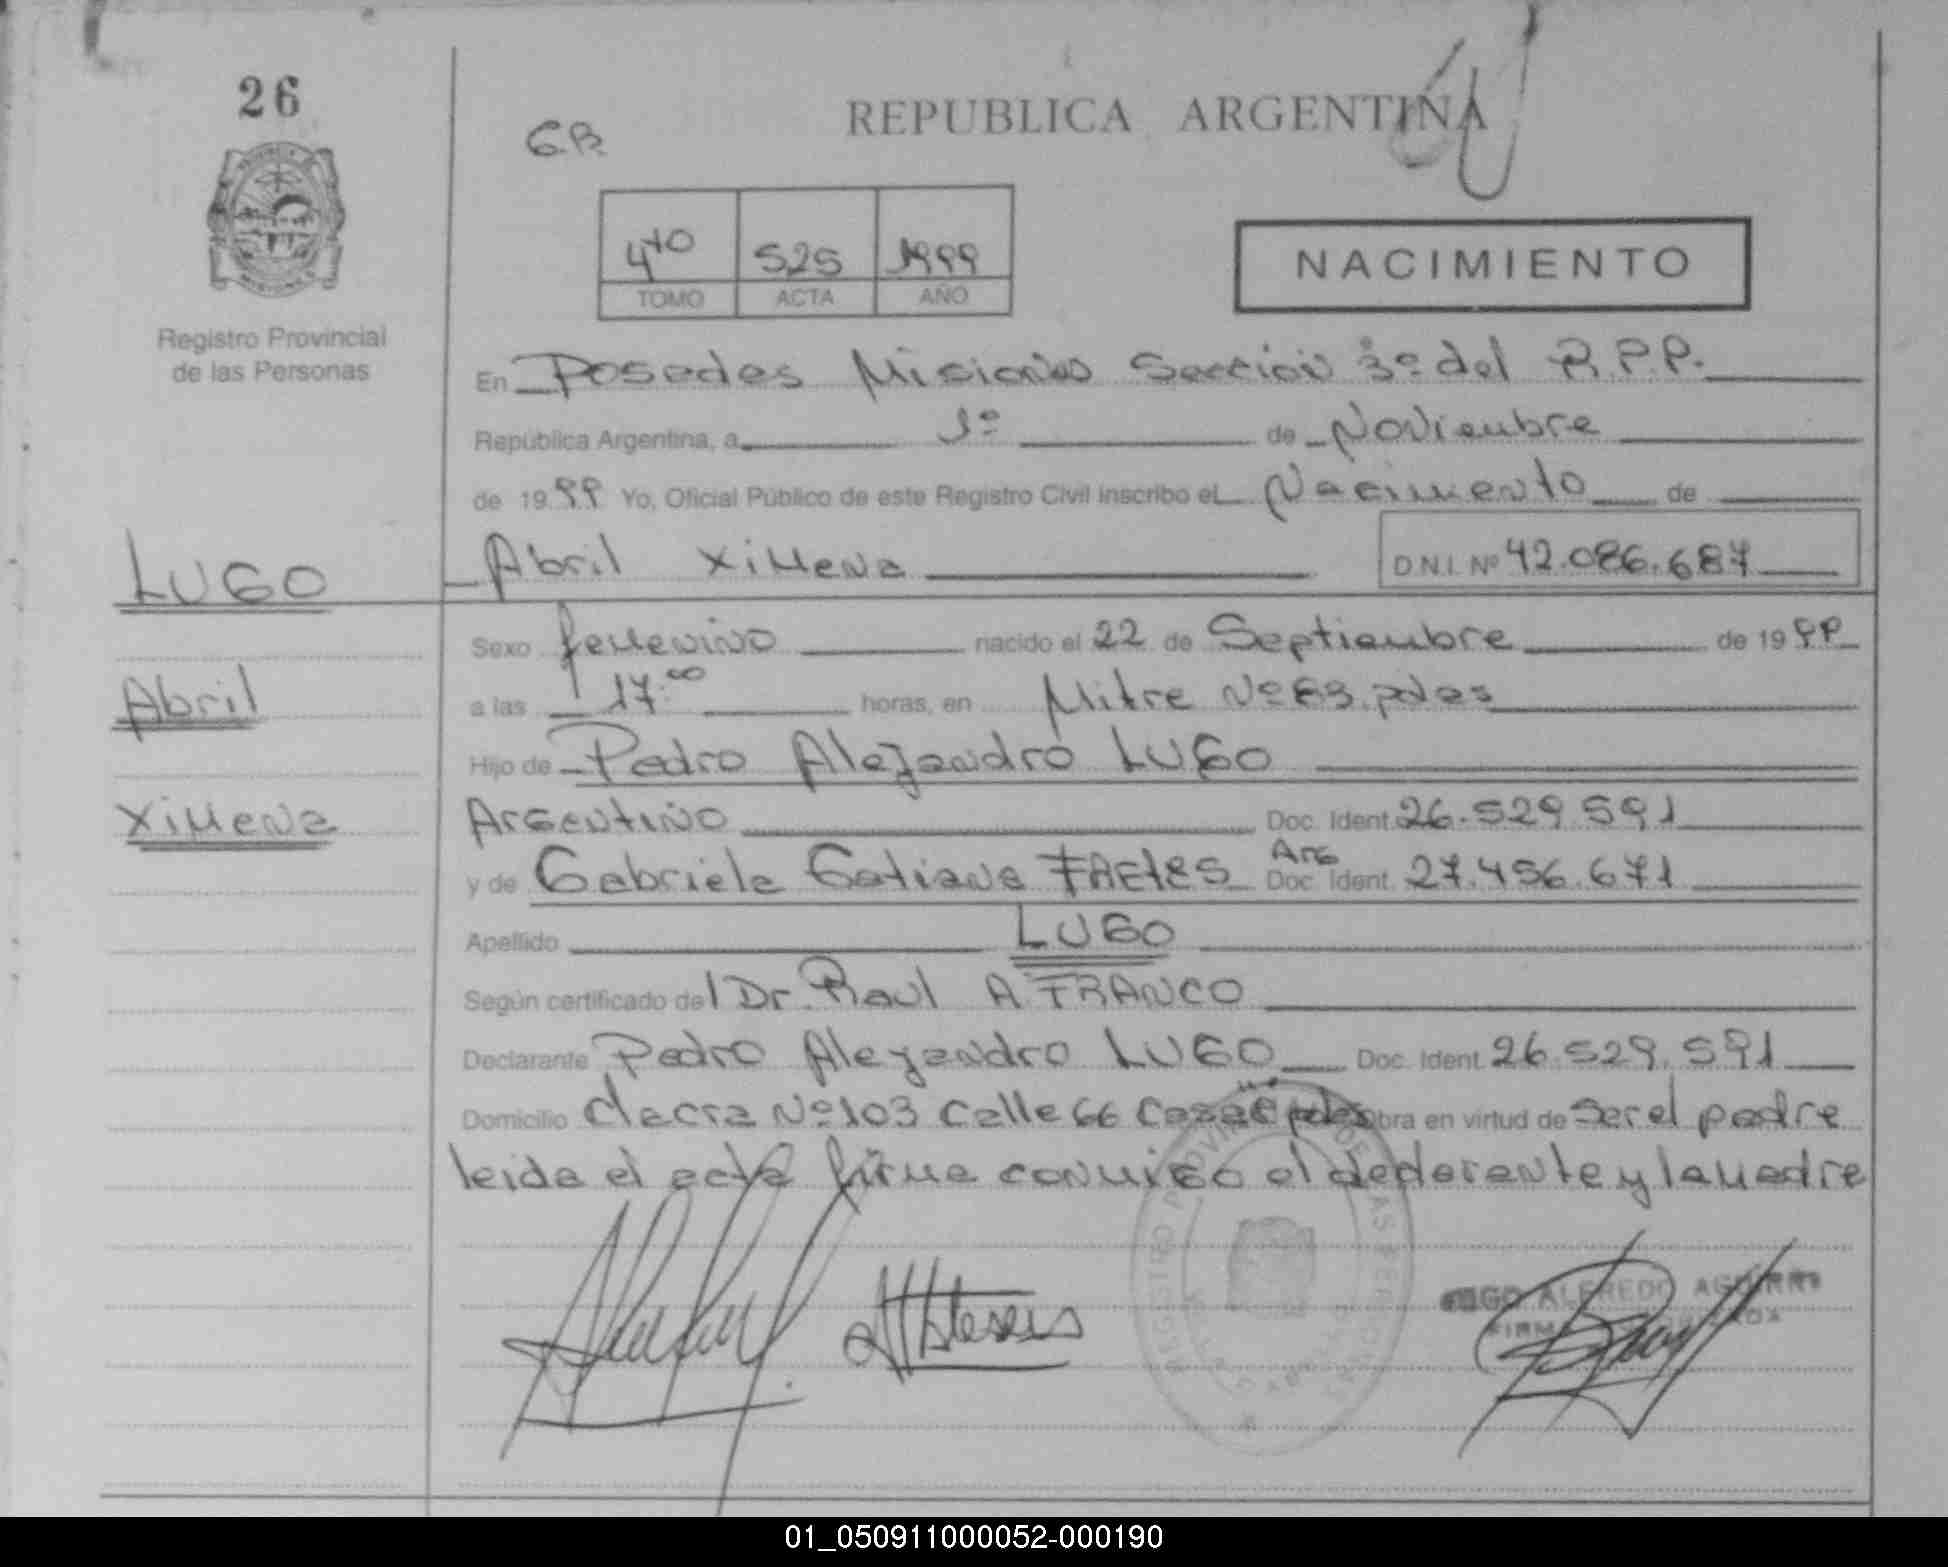 26
G.B.
REPUBLICA ARGENTINA
4to 525 1999
TOMO ACTA AÑO
NACIMIENTO
Registro Provincial
de las Personas
En Posadas Misiones Sección 3º del R.P.P.
República Argentina, a 1º de Noviembre
de 1999 Yo, Oficial Público de este Registro Civil inscribo el Nacimiento de
LUGO
Abril Ximena D.N.I. Nº 42.086.687
Sexo femenino nacido el 22 de Septiembre de 1999
Abril
a las 17:00 horas, en Mitre Nº 63. pdas
Hijo de Pedro Alejandro LUGO
Ximena
Argentino Doc. Ident. 26.529.591
y de Gabriela Tatiana Arg Doc. Ident. 27.456.671
Apellido LUGO
Según certificado del Dr. Raul A. FRANCO
Declarante Pedro Alejandro LUGO Doc. Ident. 26.529.591
Domicilio chacra Nº 103 Calle 66 Casa pdas obra en virtud de ser el padre
leida el acta firma conmigo el declarante y la madre
REGISTRO PROVINCIAL DE LAS PERSONAS
ALFREDO AGUIRRE
01_050911000052-000190